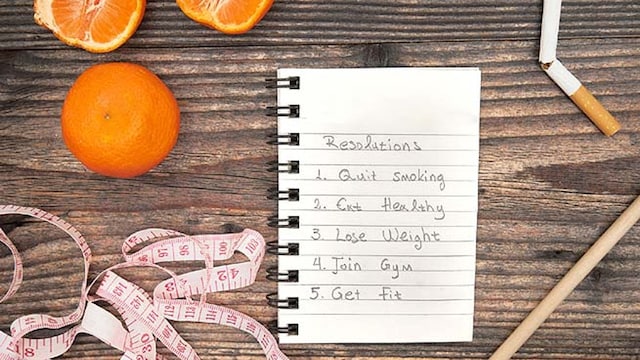 Resolutions
1. Quit smoking
2. Eat Healthy
3. Lose Weight
4. Join Gym
5. Get fit